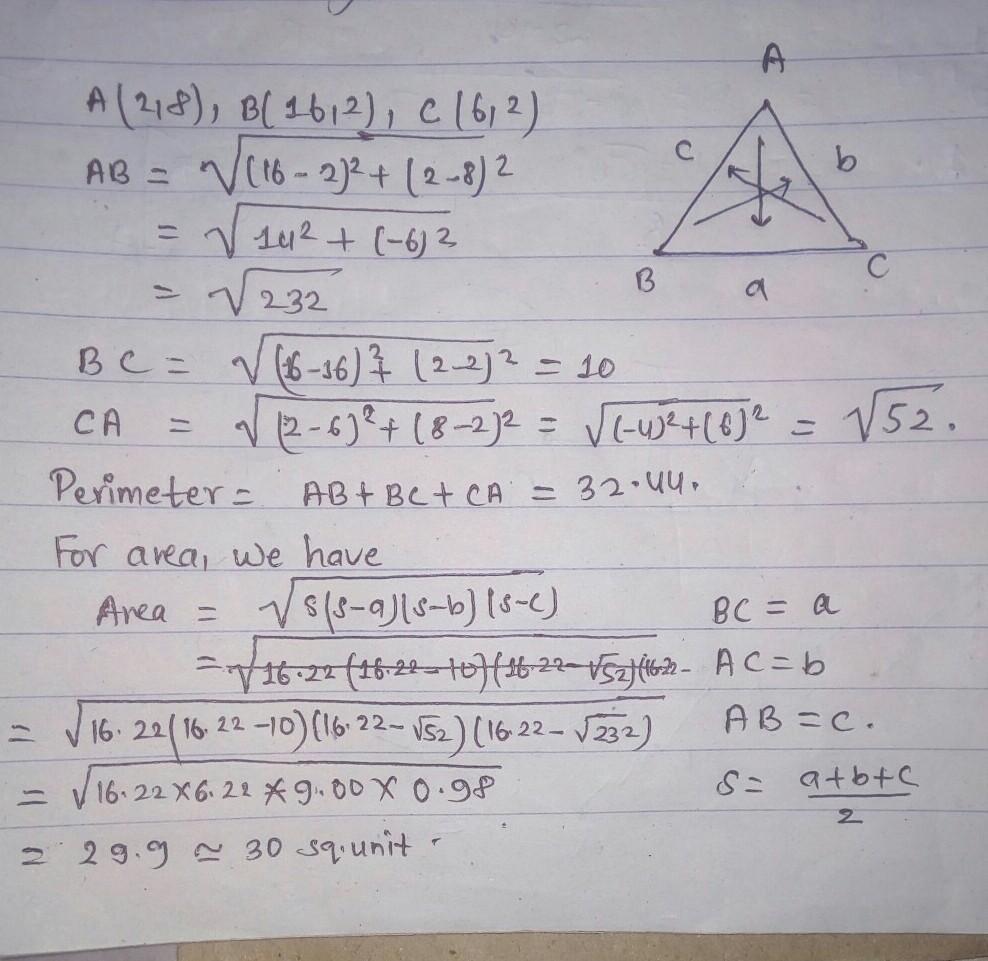 A(2,8), B(16,2), C(6,2)
AB = √(16-2)²+(2-8)²
= √14²+(-6)²
= √232
A
c
b
B
a
C
BC = √(6-16)²+(2-2)² = 10
CA = √(2-6)²+(8-2)² = √(-4)²+(6)² = √52.
Perimeter = AB+BC+CA = 32.44.
For area, we have
Area = √s(s-a)(s-b)(s-c)
BC = a
= √16.22(16.22-10)(16.22-√52)(16.22-
AC = b
= √16.22(16.22-10)(16.22-√52)(16.22-√232)
AB = c.
= √16.22×6.22×9.00×0.98
S = a+b+c
2
= 29.9 ≃ 30 sq.unit.